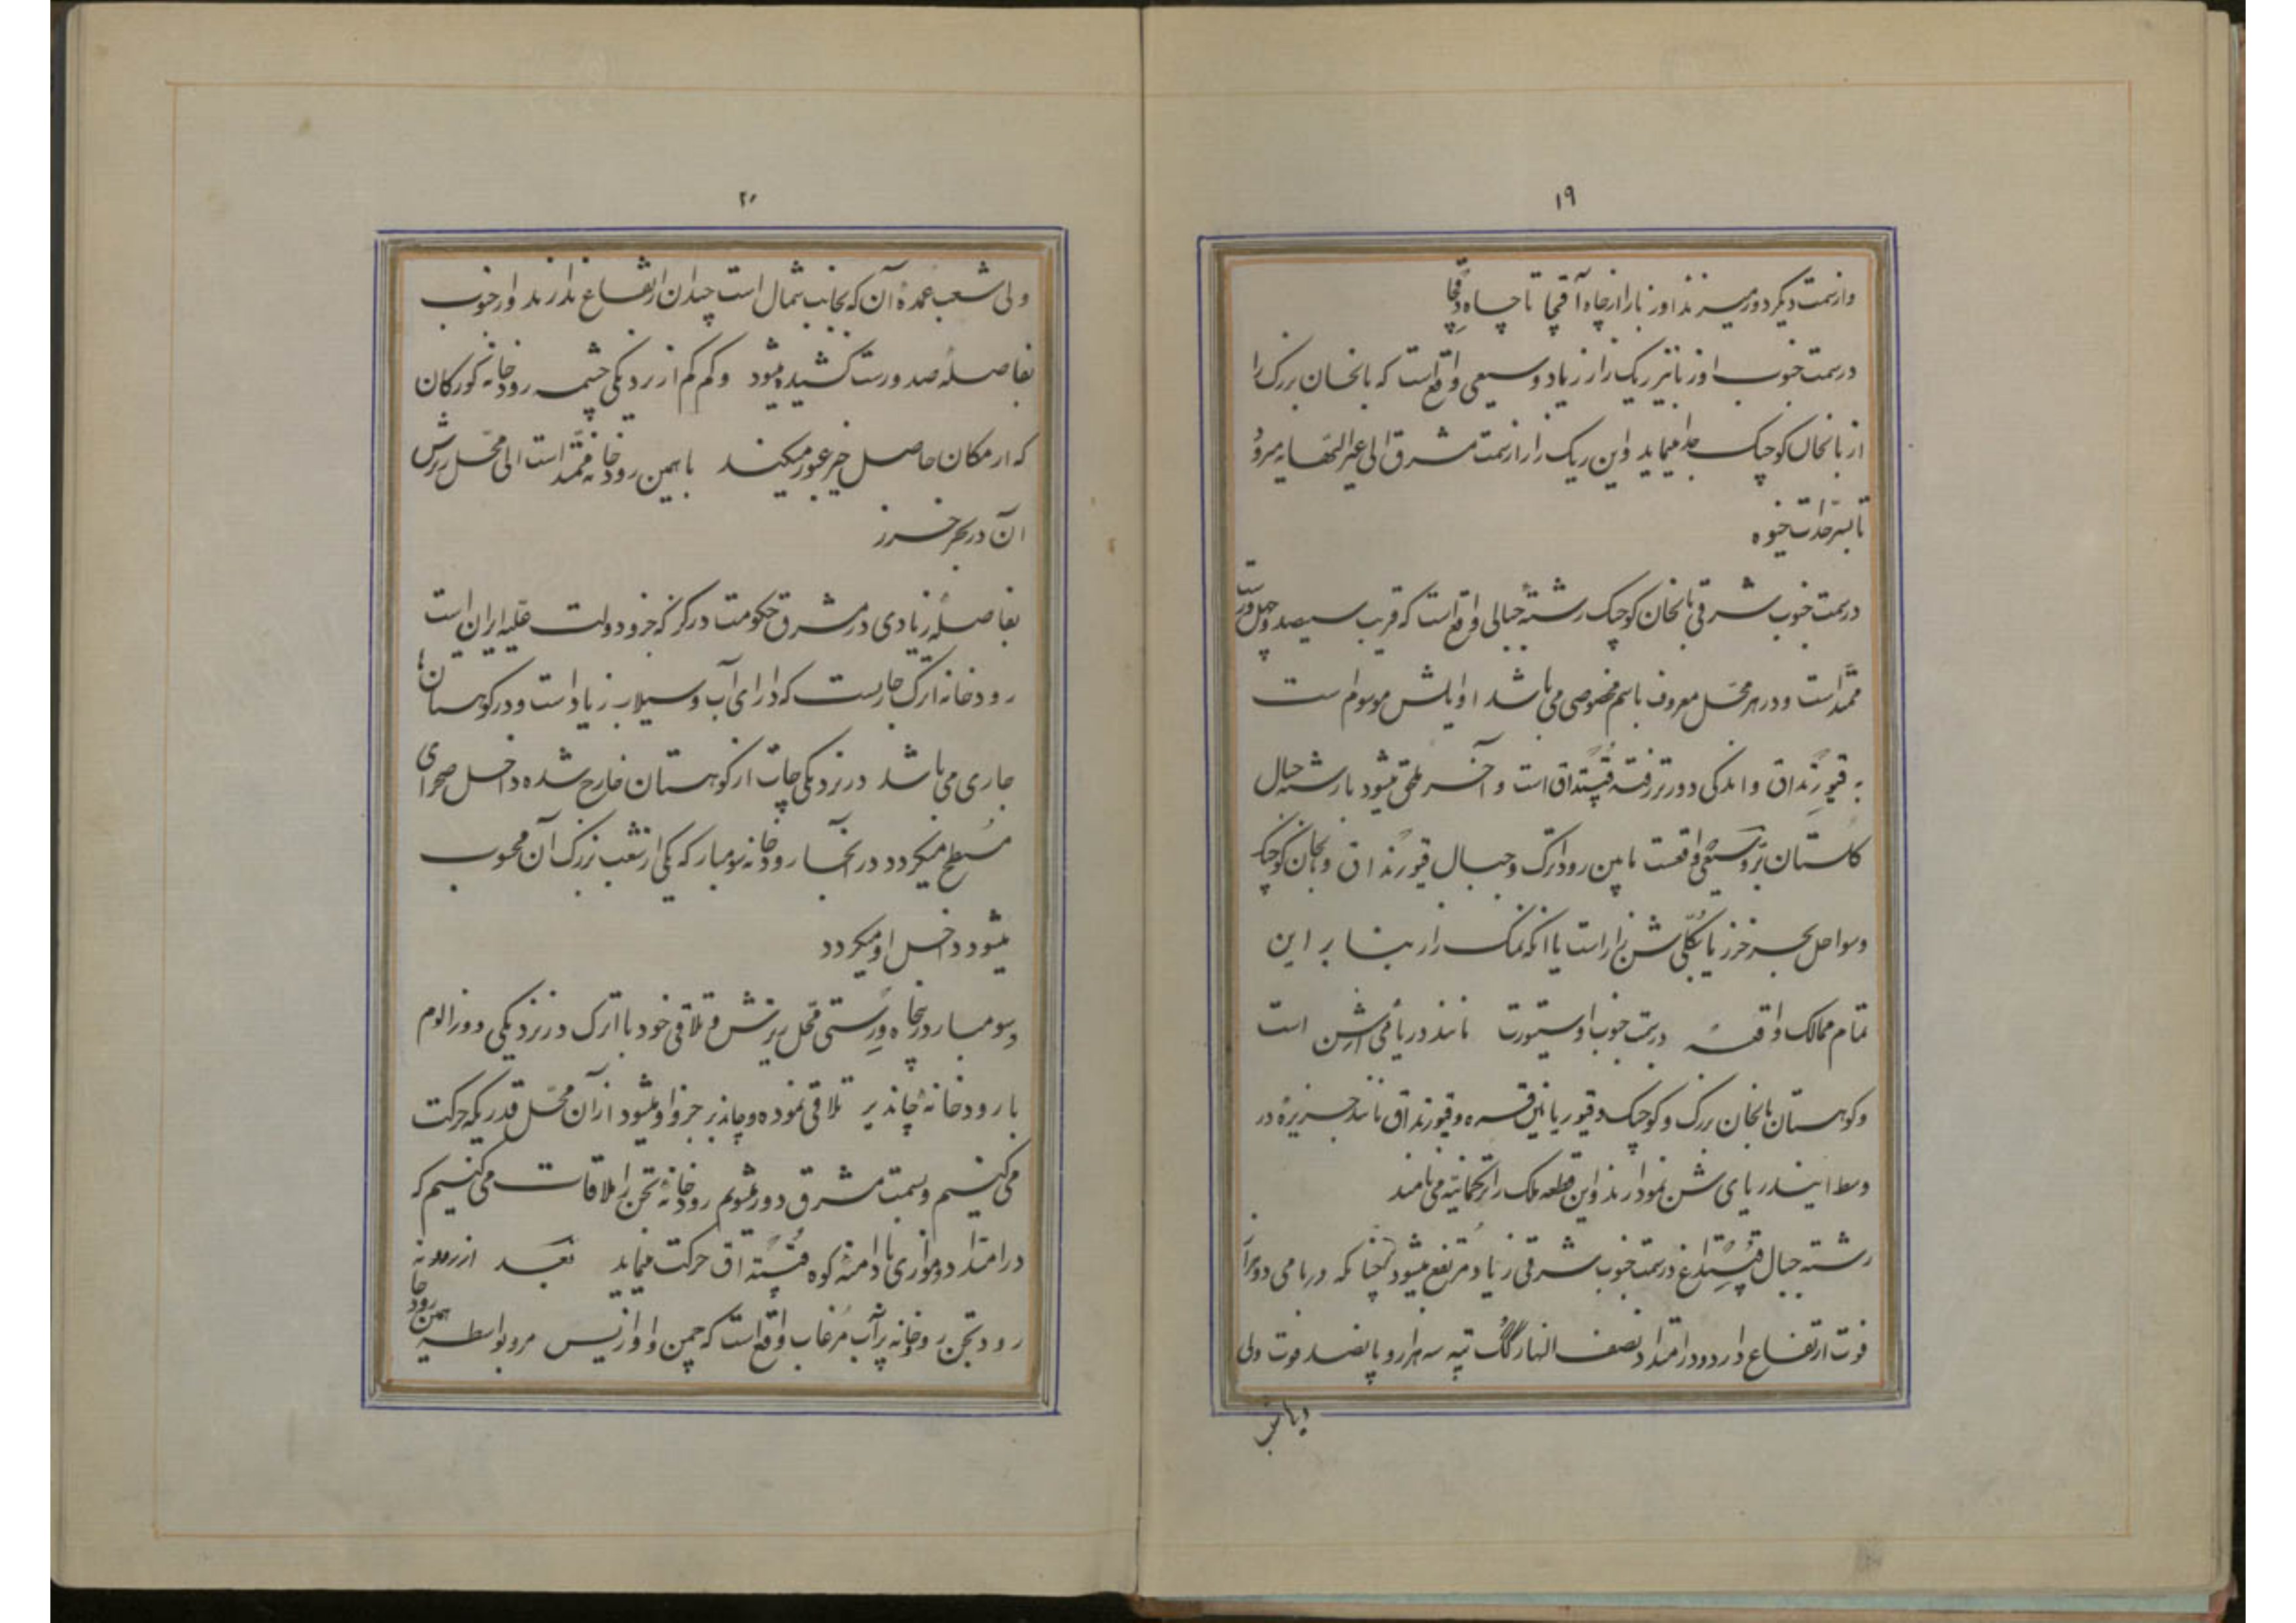 ۱۹
وازسمت دیگر دور میزند اوزبا را از چاه آقچا تا چاه دقچا
درسمت جنوب اوزبا نیز ریک زار زیاد و سیعی واقع است که بالخان بزرک را
از بالخان کوچک جدا مینماید واین ریک زار از سمت مشرق الی غیرالنهایه میرود
تا بسرحدات خیوه
درسمت جنوب شرقی بالخان کوچک رشتهٔ جبالی واقع است که قریب سیصد و چهل ورست
ممتد است و در هر محل معروف باسم مخصوصی می باشد اوایلش موسوم است
به قیورنداق و اندکی دورتر رفته قپتداق است و آخر ملحق میشود با رشته جبال
کلستان بَرّ وسیعی واقعست مابین رود اترک و جبال قیورنداق و بالخان کوچک
وسواحل بحر خزر یا بکلی شن زار است یا انکه نمک زار بنا بر این
تمام ممالک واقعهٔ درسمت جنوب اوستیورت مانند دریائی از شن است
وکوهستان بالخان بزرک و کوچک و قیور یا نین قره و قیورنداق مانند جزیرهٔ در
وسط ایندریای شن نمودارند واین قطعه ملک را ترکمانیه می نامند
رشته جبال درسمت جنوب شرقی زیاد مرتفع میشود چنانکه دربامی دوهزار
فوت ارتفاع دارد و در امتداد نصف النهار گگ تپه سه هزار و پانصد فوت ولی
۲۰
ولی شعب عمدهٔ آن که بجانب شمال است چندان ارتفاع ندارند و از جنوب
بفاصلهٔ صد ورست کشیده میشود و کم کم از نزدیکی چشمه رودخانه کورکان
که از مکان حاصل خیز عبور میکند با همین رودخانه ممتد است الی محل ریزش
آن در بحر خزر
بفاصلهٔ زیادی در مشرق حکومت درکز که جزو دولت علیه ایران است
رودخانه اترک جاریست که دارای آب و سیلاب زیاد است و در کوهستان
جاری می باشد در نزدیکی چات از کوهستان خارج شده داخل صحرای
مسطح میگردد در انجا رودخانه سومبار که یکی از شعب بزرک آن محسوب
میشود داخل او میگردد
و سومبار در پنجاه ورستی محل ریزش و تلاقی خود با اترک در نزدیکی دوزالوم
با رودخانهٔ چاندیر تلاقی نموده و چاندیر جزو او میشود از آن محل قدریکه حرکت
می کنیم و بسمت مشرق دور میشویم رودخانهٔ تجن را ملاقات می کنیم که
در امتداد و موازی با دامنهٔ کوه حرکت مینماید بعد از
رود تجن رودخانه پرآب مرغاب واقع است که چمن و اوازیس مرو بواسطه همین رودخا